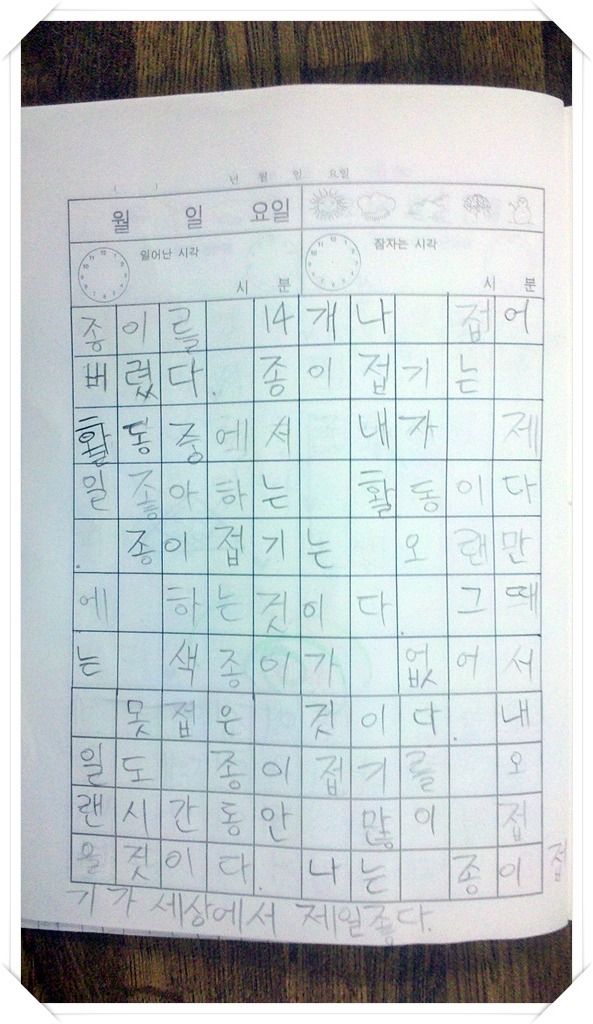 ( ) 년 월 일 요일
월 일 요일
일어난 시각 시 분 잠자는 시각 시 분
종이를 14개나 접어
버렸다. 종이접기는
활동중에서 내가 제
일 좋아하는 활동이다
. 종이접기는 오랜만
에 하는것이다. 그때
는 색종이가 없어서
못접은 것이다. 내
일도 종이접기를 오
랜시간동안 많이 접
을것이다. 나는 종이접
기가 세상에서 제일좋다.